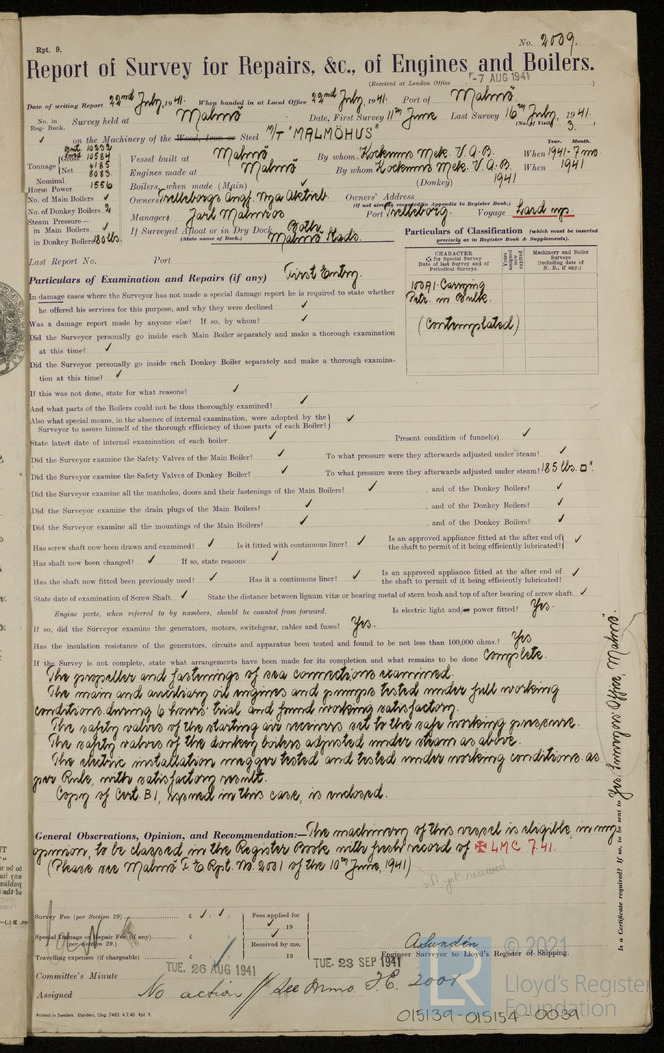 Rpt. 9.
No. 2009.
Report of Survey for Repairs, &c., of Engines and Boilers.
(Received at London Office -7 AUG 1941 )
Date of writing Report 22nd July, 1941. When handed in at Local Office 22nd July, 1941. Port of Malmö
No. in Reg. Book. Survey held at Malmö Date, First Survey 11th June Last Survey 16th July, 1941.
(No. of Visits 3.
on the Machinery of the Wood, Iron or Steel M/T "MALMÖHUS"
Year. Month.
Tonnage Gross 10584 Vessel built at Malmö By whom Kockums Mek. V. A.B. When 1941-7 mo
Net Engines made at Malmö By whom Kockums Mek. V. A.B. When 1941
Nominal Horse Power 1556 Boilers, when made (Main) ✓ (Donkey) 1941
No. of Main Boilers ✓ Owners Trelleborgs Ångf. Nya Aktieb. Owners' Address
(if not already recorded in Appendix to Register Book.)
No. of Donkey Boilers 2 Managers Port Trelleborg. Voyage Laid up.
Steam Pressure—
in Main Boilers ✓ If Surveyed Afloat or in Dry Dock Both.
in Donkey Boilers 180 lbs. (State name of Dock.) Malmö
Particulars of Classification (which must be inserted precisely as in Register Book & Supplements).
Last Report No. Port
CHARACTER
for Special Survey
Date of last Survey and of Periodical Surveys.
Years assigned now expired
Machinery and Boiler Surveys
(including date of N. B., if any.)
100A1 Carrying
Petr. in Bulk.
(Contemplated)
Particulars of Examination and Repairs (if any) First Entry.
In damage cases where the Surveyor has not made a special damage report he is required to state whether
he offered his services for this purpose, and why they were declined ✓
Was a damage report made by anyone else? If so, by whom? ✓
Did the Surveyor personally go inside each Main Boiler separately and make a thorough examination
at this time? ✓
Did the Surveyor personally go inside each Donkey Boiler separately and make a thorough examina-
tion at this time? ✓
If this was not done, state for what reasons? ✓
And what parts of the Boilers could not be thus thoroughly examined? ✓
Also what special means, in the absence of internal examination, were adopted by the
Surveyor to assure himself of the thorough efficiency of those parts of each Boiler? ✓
State latest date of internal examination of each boiler ✓ Present condition of funnel(s) ✓
Did the Surveyor examine the Safety Valves of the Main Boiler? ✓ To what pressure were they afterwards adjusted under steam? ✓
Did the Surveyor examine the Safety Valves of Donkey Boiler? ✓ To what pressure were they afterwards adjusted under steam? 185 lbs. □".
Did the Surveyor examine all the manholes, doors and their fastenings of the Main Boilers? ✓ , and of the Donkey Boilers? ✓
Did the Surveyor examine the drain plugs of the Main Boilers? ✓ , and of the Donkey Boilers? ✓
Did the Surveyor examine all the mountings of the Main Boilers? ✓ , and of the Donkey Boilers? ✓
Has screw shaft now been drawn and examined? ✓ Is it fitted with continuous liner? ✓ Is an approved appliance fitted at the after end of the shaft to permit of it being efficiently lubricated? ✓
Has shaft now been changed? ✓ If so, state reasons ✓
Has the shaft now fitted been previously used? ✓ Has it a continuous liner? ✓ Is an approved appliance fitted at the after end of the shaft to permit of it being efficiently lubricated? ✓
State date of examination of Screw Shaft ✓ State the distance between lignum vitæ or bearing metal of stern bush and top of after bearing of screw shaft ✓
Engine parts, when referred to by numbers, should be counted from forward. Is electric light and/or power fitted? Yes.
If so, did the Surveyor examine the generators, motors, switchgear, cables and fuses? Yes.
Has the insulation resistance of the generators, circuits and apparatus been tested and found to be not less than 100,000 ohms? Yes
If the Survey is not complete, state what arrangements have been made for its completion and what remains to be done Complete.
The propeller and fastenings of sea connections examined.
The main and auxiliary oil engines and pumps tested under full working
conditions during 6 hours' trial and found working satisfactory.
The safety valves of the starting air receivers set to the safe working pressure.
The safety valves of the donkey boilers adjusted under steam as above.
The electric installation megger tested and tested under working conditions as
per Rule, with satisfactory result.
Copy of Cert. B1, issued in this case, is enclosed.
General Observations, Opinion, and Recommendation:—The machinery of this vessel is eligible, in my
opinion, to be classed in the Register Book with fresh record of ✠ LMC 7.41.
(Please see Malmö F.E. Rpt. No. 2001 of the 10th June, 1941)
not yet received
Is a Certificate required? If so, to be sent to Yes. Surveyors' Office, Malmö.
Survey Fee (per Section 29) £ Fees applied for
Special Damage or Repair Fee (if any) (per Section 29.) £ 19
Received by me,
Travelling expenses (if chargeable) £ 19
A. Lundén
Engineer Surveyor to Lloyd's Register of Shipping.
TUE. 26 AUG 1941 TUE. 23 SEP 1941
Committee's Minute
Assigned No action See F.E. 2001
Printed in Sweden. Elanders, Gbg. 7483. 4.7.40 Rpt. 9.
© 2021
LR
Lloyd's Register
Foundation
015139-015154-0039